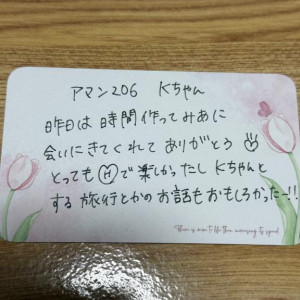 アマン206 Kちゃん
昨日は時間作ってみあに
会いにきてくれてありがとう
とってもHで楽しかったし Kちゃんと
する旅行とかのお話もおもしろかったー!!
There is more to life than increasing its speed.